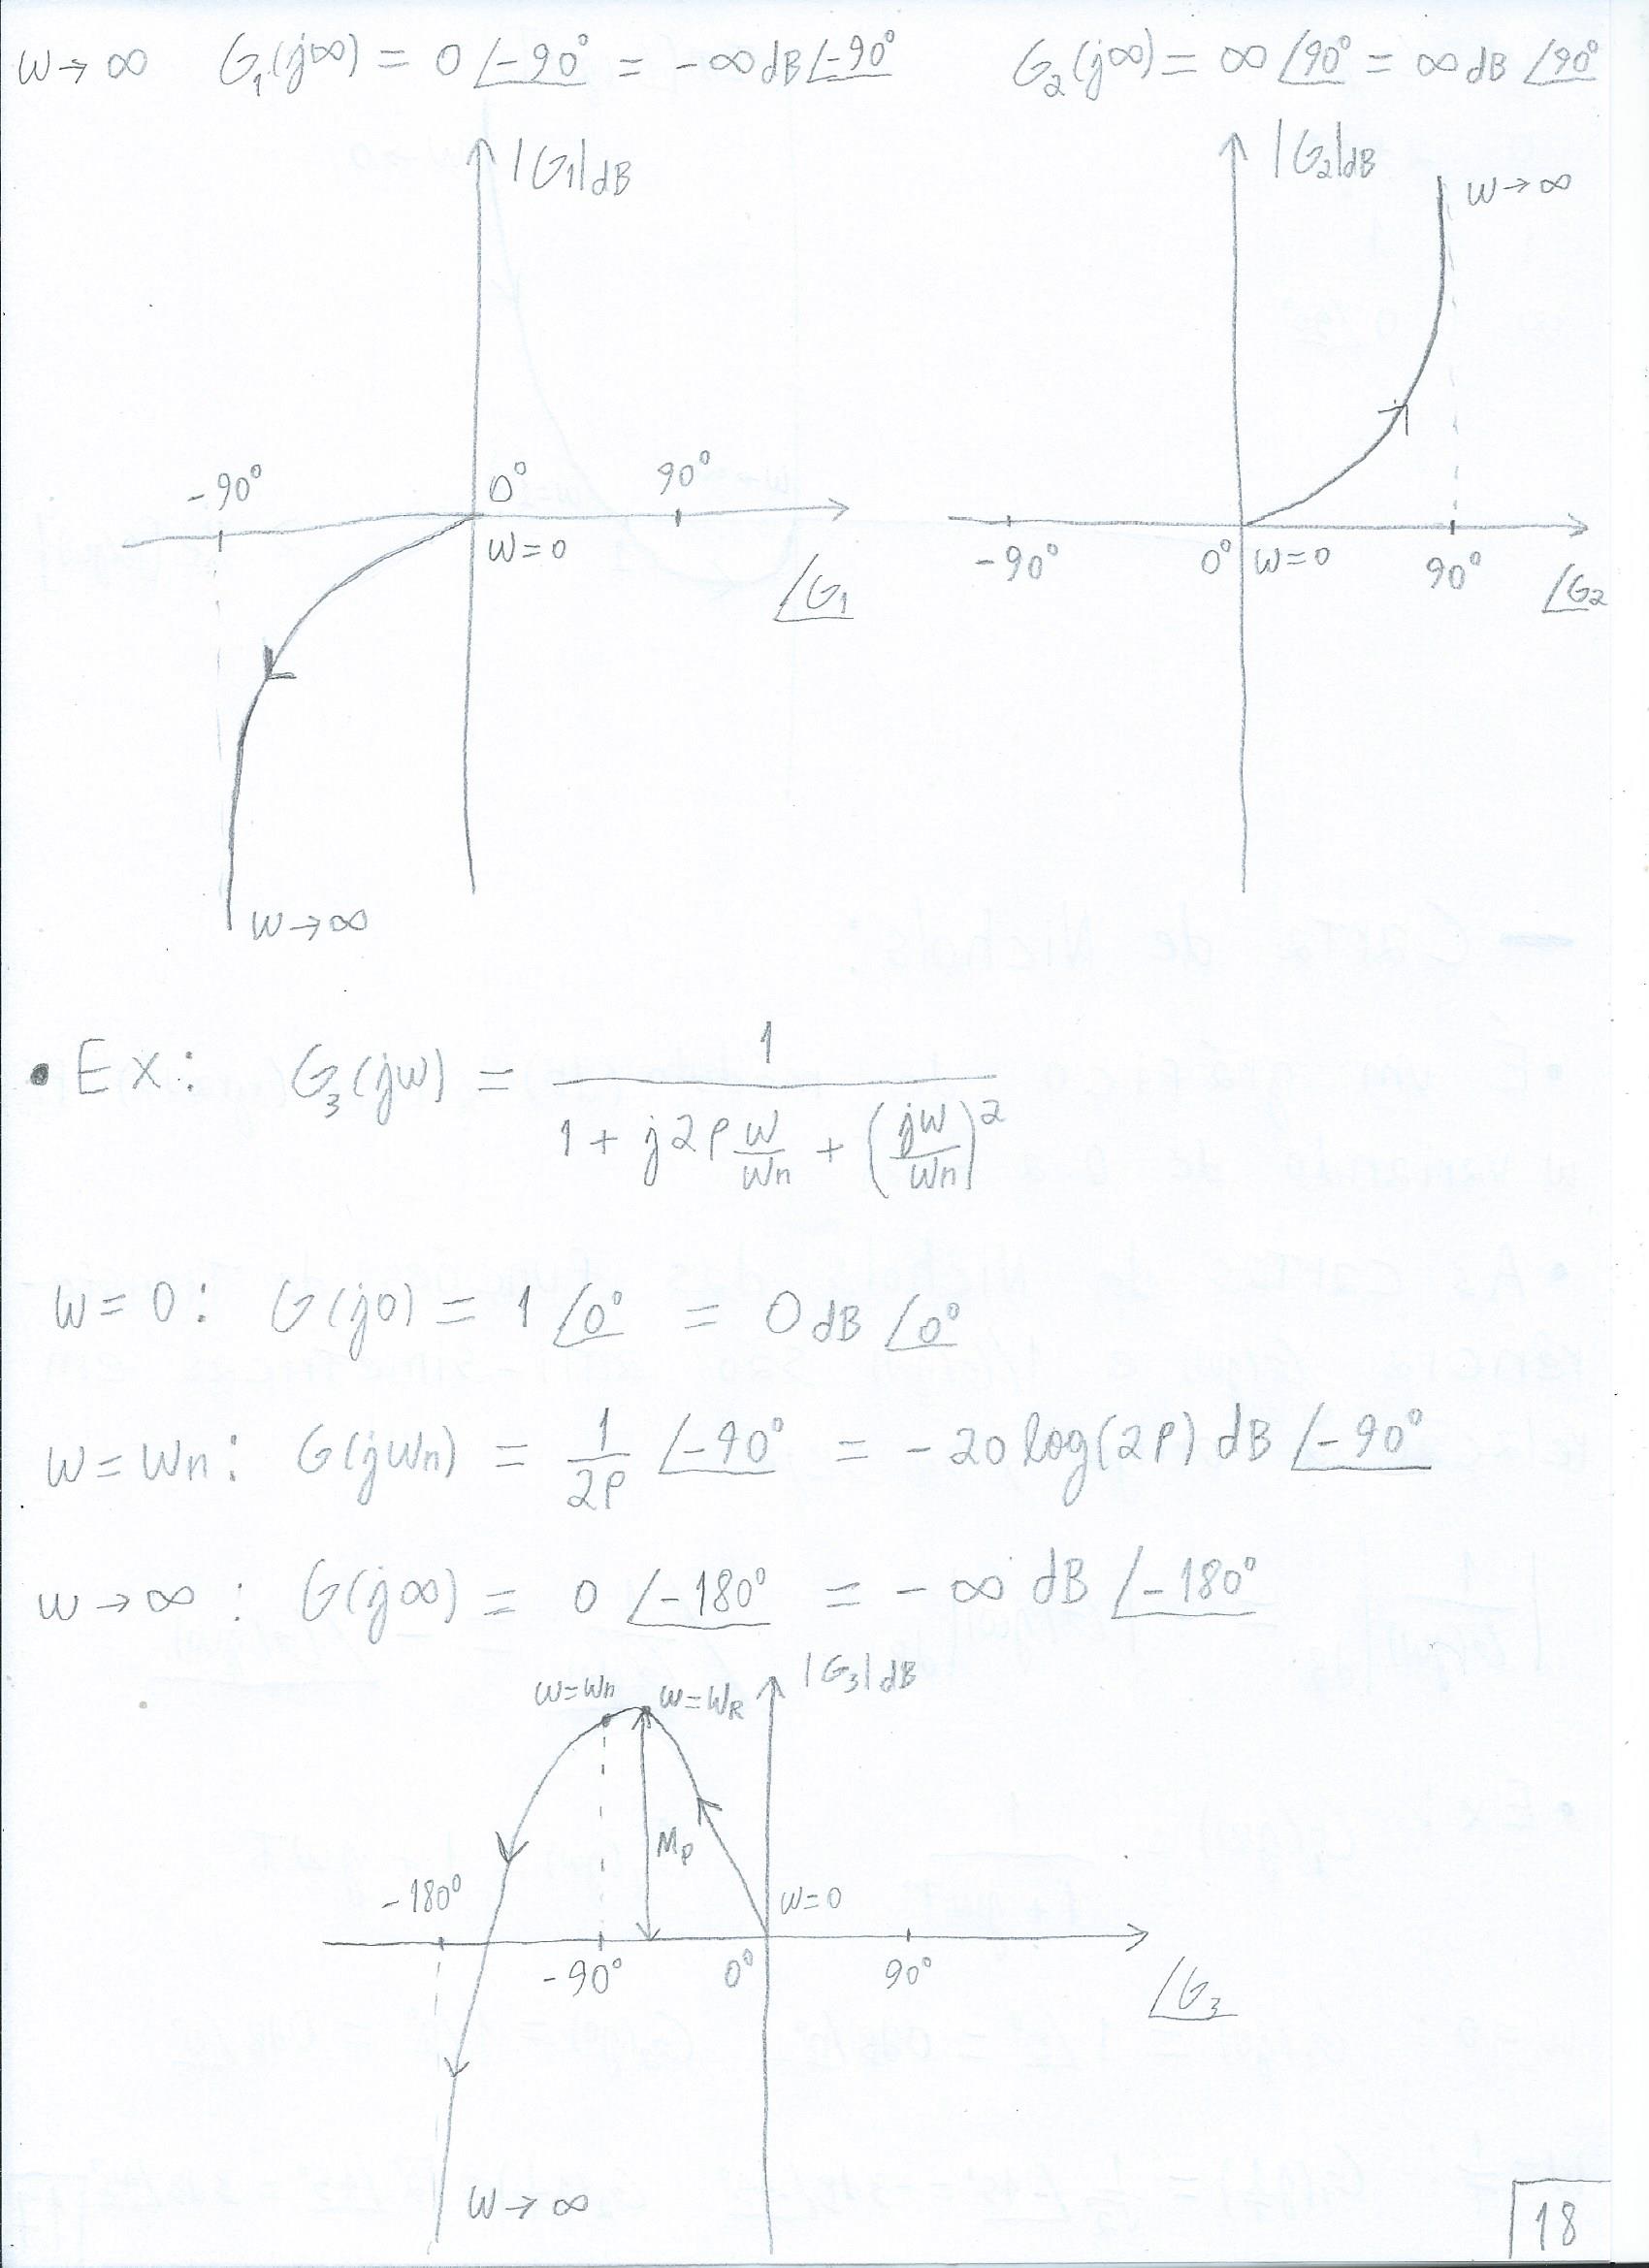 w→∞ G₁(j∞) = 0 ∠-90° = -∞ dB ∠-90° G₂(j∞) = ∞ ∠90° = ∞ dB ∠90°
|G₁|dB
|G₂|dB
w→∞
-90° 0° 90°
w=0
∠G₁
-90° 0° w=0 90° ∠G₂
w→∞
• Ex: G₃(jw) = 1 / (1 + j2ρ w/wn + (jw/wn)²)
w=0: G(j0) = 1 ∠0° = 0 dB ∠0°
w=wn: G(jwn) = 1/2ρ ∠-90° = -20 log(2ρ) dB ∠-90°
w→∞: G(j∞) = 0 ∠-180° = -∞ dB ∠-180°
|G₃|dB
w=wn w=wR
Mp
-180° w=0
-90° 0° 90°
∠G₃
w→∞
18